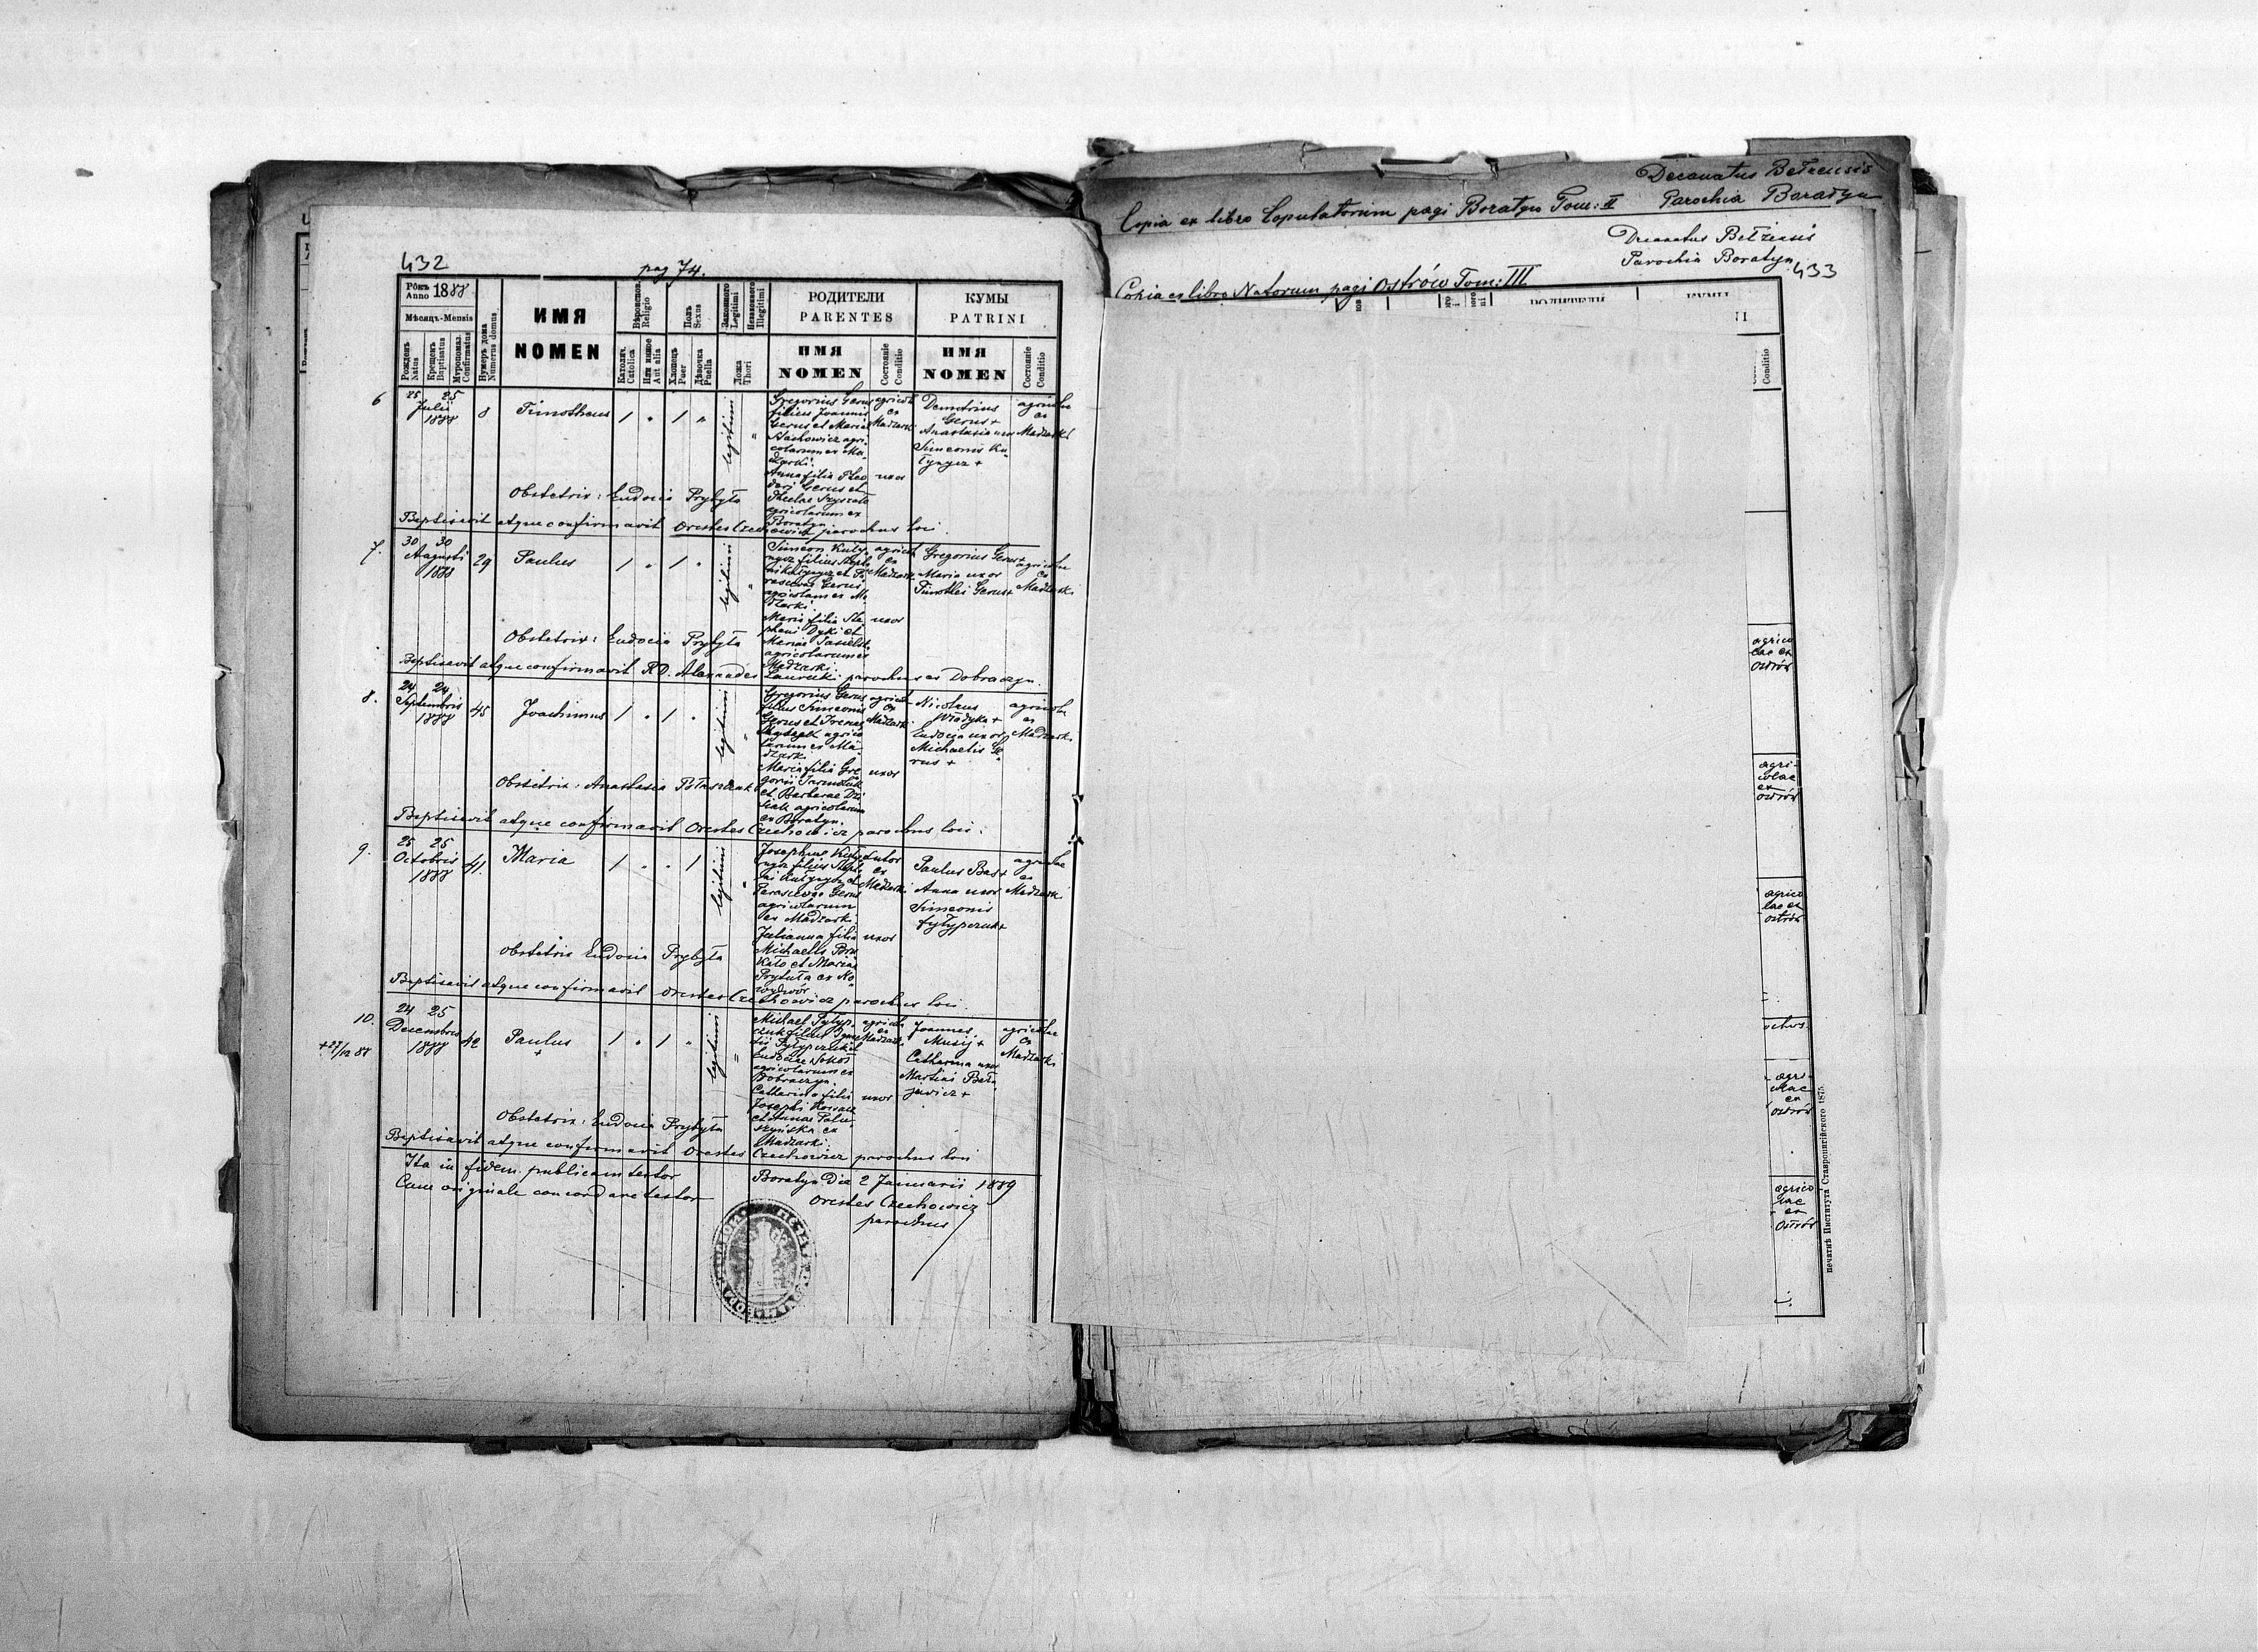 432
pag 74.
Рôкъ Anno 1888
Мѣсяць-Mensis
Рожденъ Natus
Крещенъ Baptisatus
Мѵропомаз. Confirmatus
Нумеръ дома Numerus domus
ИМЯ
NOMEN
Вѣроиспов. Religio
Католич. Catolica
Или иное Aut alia
Полъ Sexus
Хлопецъ Puer
Дѣвочка Puella
Законного Legitimi
Незаконного Illegitimi
Ложа Thori
РОДИТЕЛИ
PARENTES
ИМЯ
NOMEN
Состояніе Conditio
КУМЫ
PATRINI
ИМЯ
NOMEN
Состояніе Conditio
6
25 25
Julii
1888
8
Timotheus
1 " 1 "
legitimi
"
Gregorius Gerus
filius Joannis
Gerus et Maria
Stachowicz agri-
colarum ex Ma-
dzarki.
Anna filia Theo-
dori Gerus et
Theclae
agricolarum ex
Boratyn
agricola
ex
Madzarki
uxor
Demetrius
Gerus +
Anastasia uxor
Simeonis Ku-
łynycz +
agricolae
ex
Madzarki
Obstetrix: Eudocia Prybyła
Baptisavit atque confirmavit Orestes Czechowicz parochus loci.
7.
30 30
Augusti
1888
29
Paulus
1 " 1 "
legitimi
"
Simeon Kuły-
nycz filius Stepha-
ni Kułynycz et Pa-
rascevae Gerus
agricolarum ex Ma-
dzarki.
Maria filia Ste-
phani Dyki et
Mariae
agricolarum ex
Madzarki.
agricola
ex
Madzarki
uxor
Gregorius Gerus +
Maria uxor
Timothei Gerus +
agricolae
ex
Madzarki
Obstetrix: Eudocia Prybyła
Baptisavit atque confirmavit RD. Alexander Laurecki parochus ex Dobraczyn.
8.
24 24
Septembris
1888
45
Joachimus
1 " 1 "
legitimi
"
Gregorius Gerus
filius Simeonis
Gerus et Irenae
agrico-
larum ex Ma-
dzarki
Maria filia Gre-
gorii
et Barbarae
agricolarum
ex Boratyn.
agricola
ex
Madzarki
uxor
Nicolaus
Władyka +
Eudocia uxor
Michaelis Ge-
rus +
agricolae
ex
Madzarki
Obstetrix: Anastasia
Baptisavit atque confirmavit Orestes Czechowicz parochus loci.
9.
25 25
Octobris
1888
41.
Maria
1 " " 1
legitimi
"
Josephus Kuły-
nycz filius Stepha-
ni Kułynycz et
Parascevae Gerus
agricolarum
ex Madzarki.
Julianna filia
Michaelis
et Mariae
Prytuła ex No-
wydwór
sutor
ex
Madzarki
uxor
Paulus Bas +
Anna uxor
Simeonis
Pyłypczuk +
agricolae
ex
Madzarki
Obstetrix Eudocia Prybyła
Baptisavit atque confirmavit Orestes Czechowicz parochus loci.
10.
+27/12 88
24 25
Decembris
1888
42
Paulus
+
1 " 1 "
legitimi
"
Michael Pyłyp-
czuk filius Igna-
tii Pyłypczuk et
Eudociae Sokoł
agricolarum ex
Dobraczyn.
Catharina filia
Josephi Kowacz
et Annae
ex
Madzarki.
agricola
ex
Madzarki
uxor
Joannes
Musij +
Catharina uxor
Martini Bała-
jewicz +
agricolae
ex
Madzarki
Obstetrix: Eudocia Prybyła
Baptisavit atque confirmavit Orestes Czechowicz parochus loci
Ita in fidem publicam testor
Cum originale concordare testor
Boratyn Die 2 Januarii 1889
Orestes Czechowicz
parochus
Decanatus Bełzensis
Copia ex libro Copulatorum pagi Boratyn Tom: II Parochia Boratyn
Decanatus Bełzensis
Parochia Boratyn
433
Copia ex libro Natorum pagi Ostrów Tom: III
РОДИТЕЛИ
КУМЫ
Conditio
agrico
lae ex
Ostrów
agri-
colae
ex
Ostrów
agrico
lae ex
Ostrów
ochus.
agri-
colae
ex
Ostrów
agrico
lae
ex
Ostrów
печатнѣ Института Ставропигійского 1875.